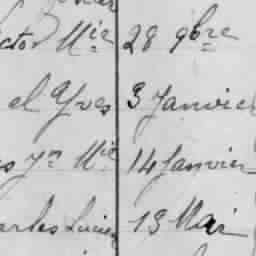 ctor Mie 28 9bre
el Yves 3 Janvier
s Jn Mie 14 Janvier
arles Lucien 13 Mai